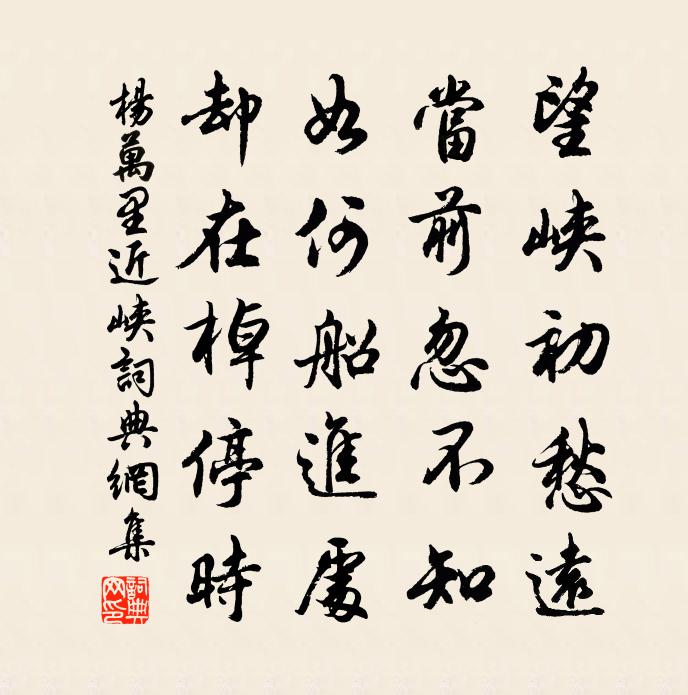 望峽初愁遠
當前忽不知
如何船進處
却在棹停時
楊萬里近峽詞典網集
詞典网印